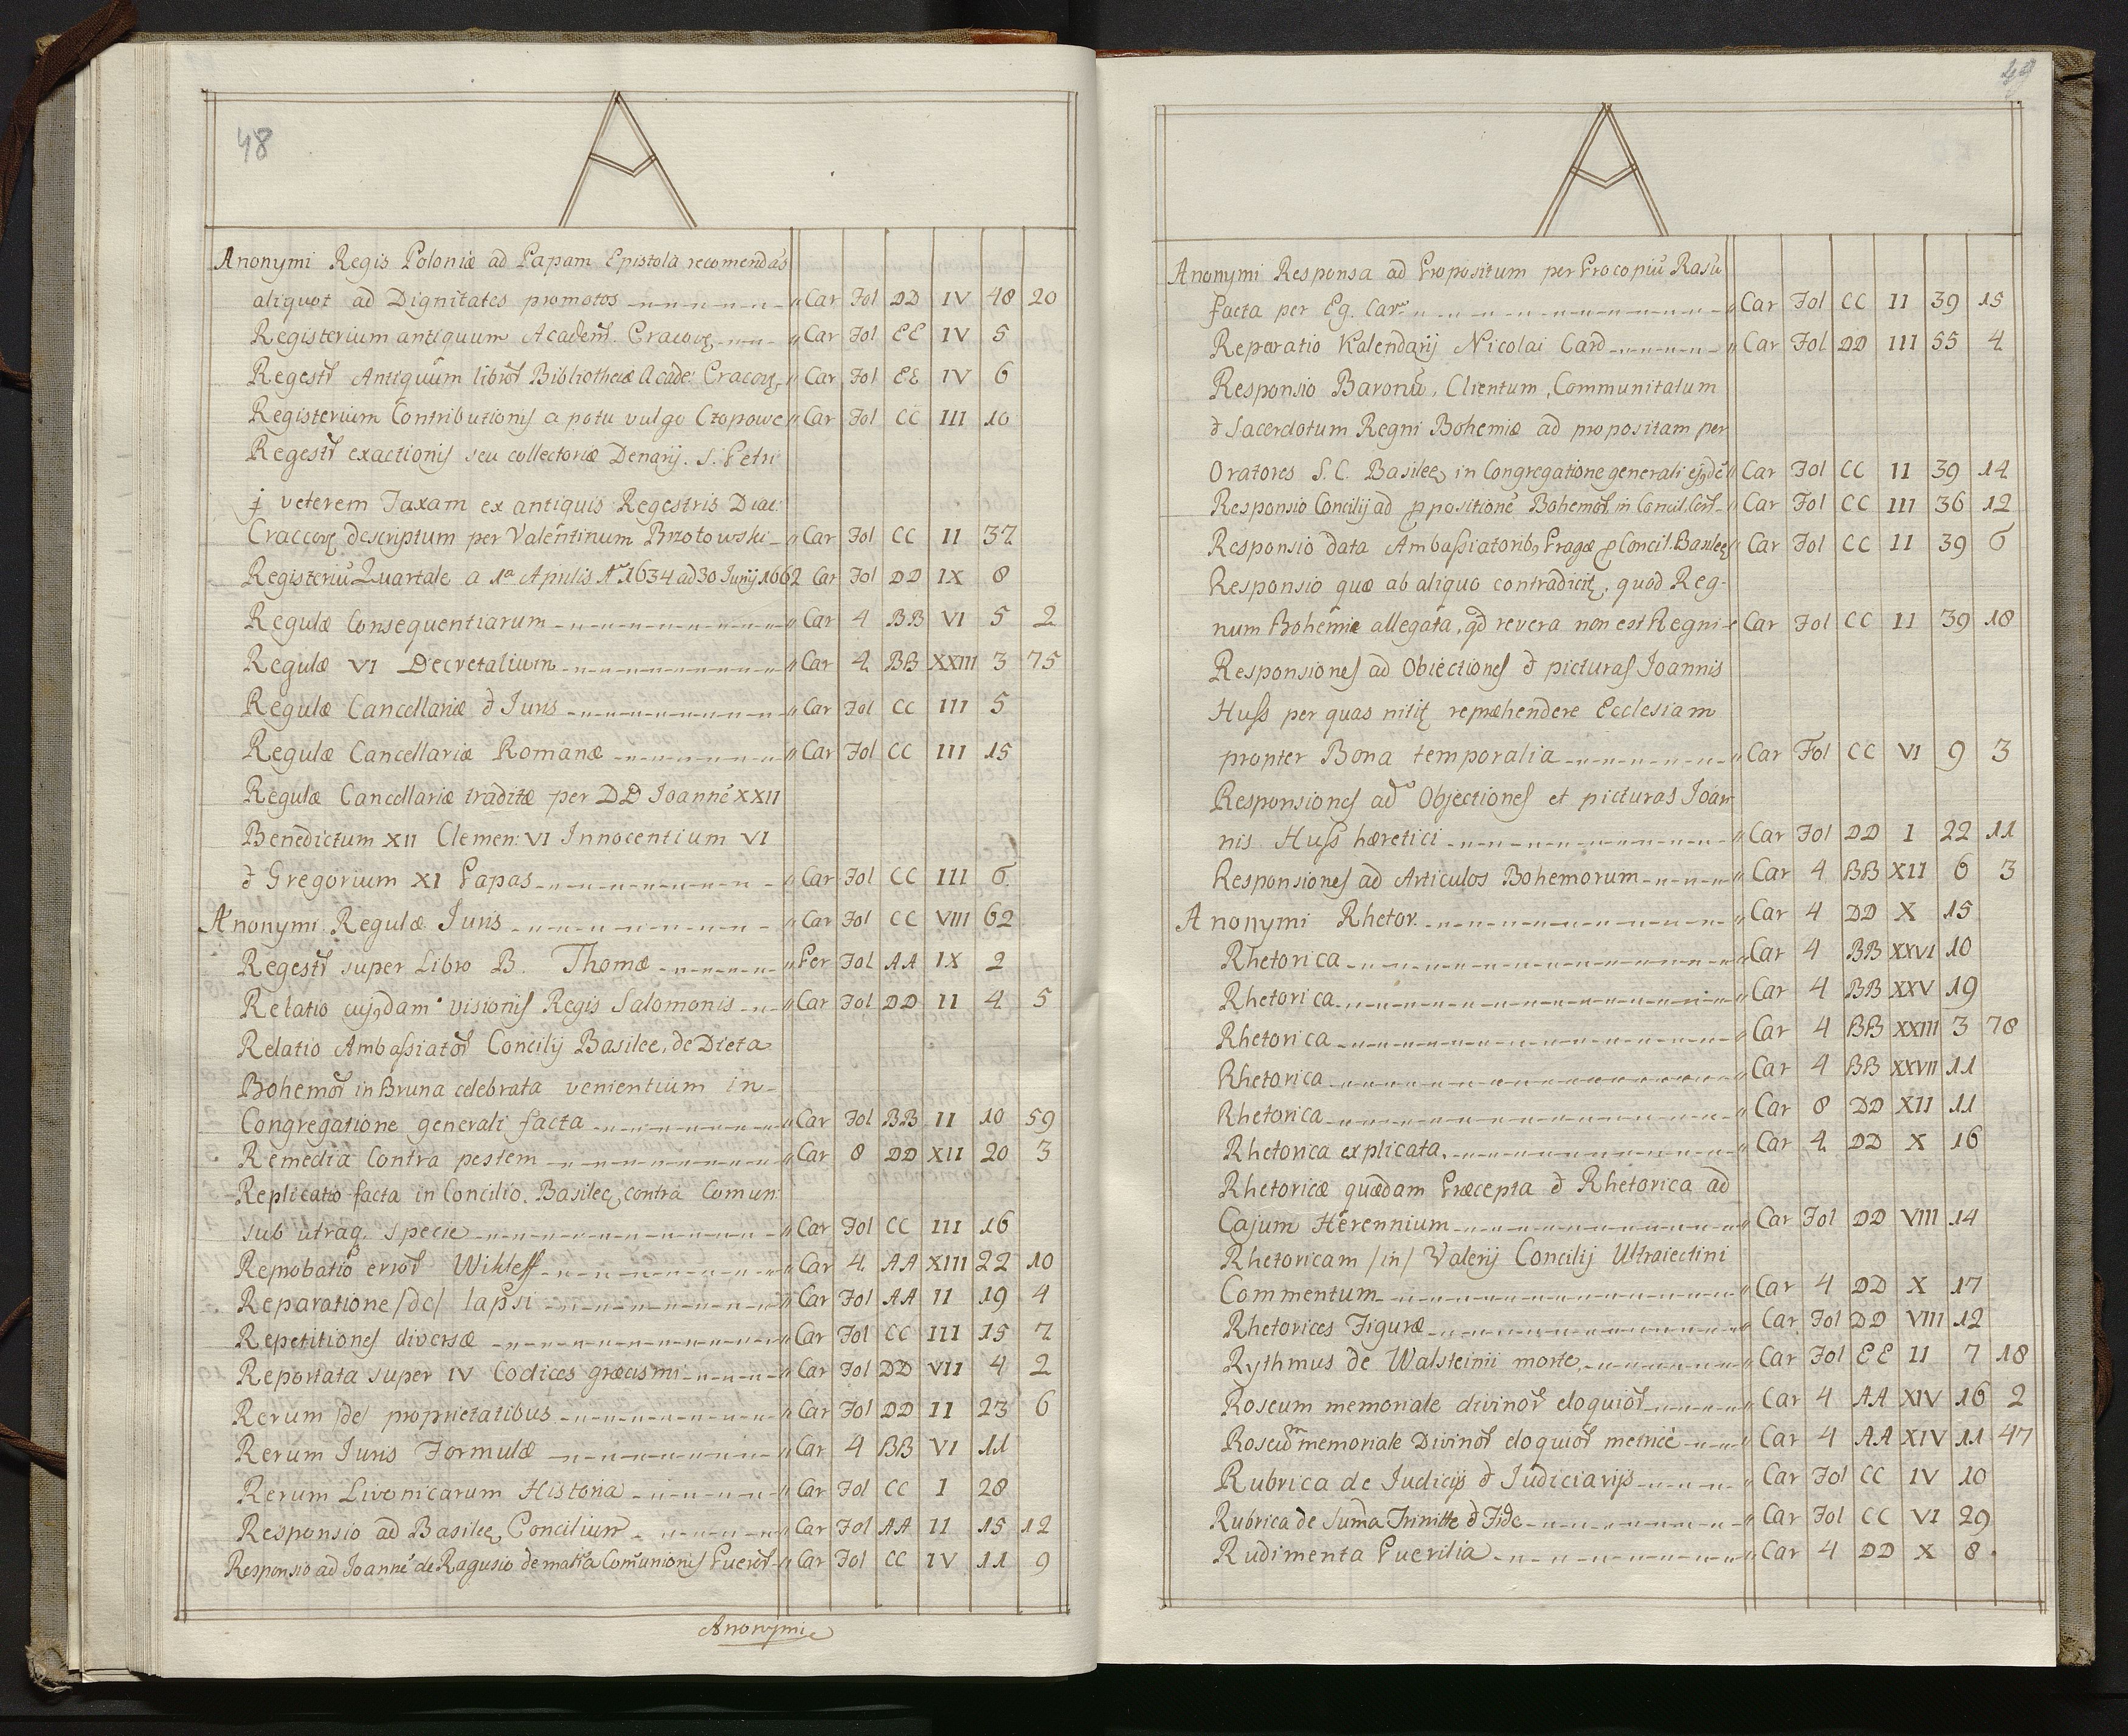 48
A
Anonymi Regis Poloniæ ad Papam Epistola recomendãs
aliquot ad Dignitates promotos " Car Fol DD IV 48 20
Registerium antiquum Academ. Cracov " Car Fol EE IV 5
Regestr Antiquum libror Bibliothecæ Acade: Cracov " Car Fol EE IV 6
Registerium Contributionis a potu vulgo Czopowe " Car Fol CC III 10
Regestr exactionis seu collectoriæ Denarij S. Petri
veterem Taxam ex antiquis Regestris Diae:
Craccov descriptum per Valentinum Brzotowski " Car Fol CC II 37
Registeriũ Quartale a 1a Aprilis Ao 1634 ad 30 Junij 1662 Car Fol DD IX 8
Regulæ Consequentiarum " Car 4 BB VI 5 2
Regulæ VI Decretalium " Car 4 BB XXIII 3 75
Regulæ Cancellariæ & Juris " Car Fol CC III 5
Regulæ Cancellariæ Romanæ " Car Fol CC III 15
Regulæ Cancellariæ traditæ per DD Joannẽ XXII
Benedictum XII Clemen: VI Innocentium VI
& Gregorium XI Papas " Car Fol CC III 6
Anonymi Regulæ Juris " Car Fol CC VIII 62
Regestr super Libro B. Thomæ " Per Fol AA IX 2
Relatio cujusdam visionis Regis Salomonis " Car Fol DD II 4 5
Relatio Ambassiator Concilij Basilee, de Dieta
Bohemor in Bruna celebrata venientium in-
Congregatione generali facta " Car Fol BB II 10 59
Remedia Contra pestem " Car 8 DD XII 20 3
Replicatio facta in Concilio Basilee, contra Comun
sub utraq. specie " Car Fol CC III 16
Reprobatio error Wikleff " Car 4 AA XIII 22 10
Reparatione /de/ lapsi " Car Fol AA II 19 4
Repetitiones diversæ " Car Fol CC III 15 7
Reportata super IV Codices græcismi " Car Fol DD VII 4 2
Rerum /de/ proprietatibus " Car Fol DD II 23 6
Rerum Juris Formulæ " Car 4 BB VI 11
Rerum Livonicarum Historia " Car Fol CC I 28
Responsio ad Basilee Concilium " Car Fol AA II 15 12
Responsio ad Joannẽ de Ragusio de matria Comunionis Pueror " Car Fol CC IV 11 9
Anonymi
49
A
Anonymi Responsa ad Propositum per Procopiũ Rasũ
facta per Eg. Car " Car Fol CC II 39 15
Reparatio Kalendarij Nicolai Card " Car Fol DD III 55 4
Responsio Baronũ, Clientum, Communitatum
& Sacerdotum Regni Bohemiæ ad propositam per
Oratores S. C. Basilee in Congregatione generali ejusdẽ " Car Fol CC II 39 14
Responsio Concilij ad ppositionẽ Bohemor in Concil. " Car Fol CC III 36 12
Responsio data Ambassiatorib, Pragæ p Concil. Basilee " Car Fol CC II 39 6
Responsio quæ ab aliquo contradicit, quod Reg-
num Bohemiæ allegata, qd revera non est Regni " Car Fol CC II 39 18
Responsiones ad Obiectiones & picturas Joannis
Huss per quas nitit repræhendere Ecclesiam
propter Bona temporalia " Car Fol CC VI 9 3
Responsiones ad Objectiones et picturas Joan
nis Huss hæretici " Car Fol DD I 22 11
Responsiones ad Articulos Bohemorum " Car 4 BB XII 6 3
Anonymi Rhetor. " Car 4 DD X 15
Rhetorica " Car 4 BB XXVI 10
Rhetorica " Car 4 BB XXV 19
Rhetorica " Car 4 BB XXIII 3 78
Rhetorica " Car 4 BB XXVII 11
Rhetorica " Car 8 DD XII 11
Rhetorica explicata. " Car 4 DD X 16
Rhetoricæ quædam Præcepta & Rhetorica ad
Cajum Herennium " Car Fol DD VIII 14
Rhetoricam /in/ Valerij Concilij Ultraiectini
Commentum " Car 4 DD X 17
Rhetorices Figuræ " Car Fol DD VIII 12
Rythmus de Walsteinii morte " Car Fol EE II 7 18
Roseum memoriale divinor eloquior " Car 4 AA XIV 16 2
Roseum memoriale Divinor eloquior metricè " Car 4 AA XIV 11 47
Rubrica de Iudicijs & Judiciarijs " Car Fol CC IV 10
Rubrica de Suma Trinitte & Fide " Car Fol CC VI 29
Rudimenta Puerilia " Car 4 DD X 8